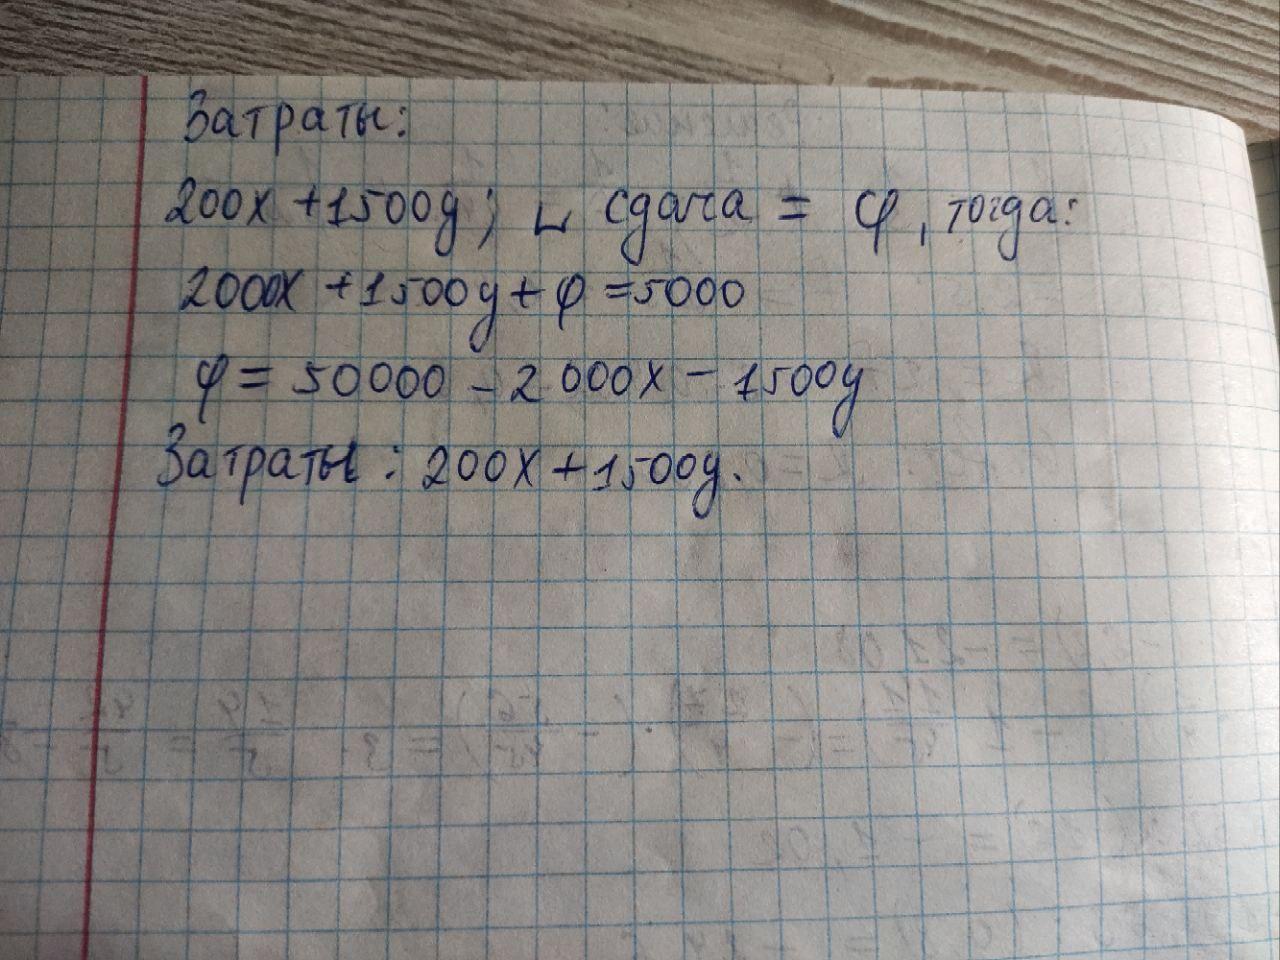 Затраты:
200x + 1500y; ⊔ сдача = φ, тогда:
2000x + 1500y + φ = 5000
φ = 50000 - 2000x - 1500y
Затраты: 200x + 1500y.